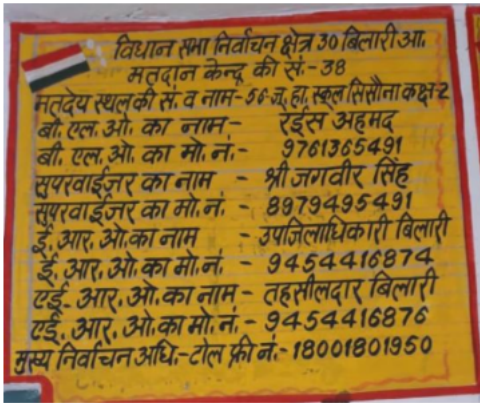 विधान सभा निर्वाचन क्षेत्र 30 बिलारी आ.
मतदान केन्द्र की सं.-38
मतदेय स्थल की सं. व नाम-56-जू. हा. स्कूल सिसौना कक्ष-2
बी. एल. ओ. का नाम- रईस अहमद
बी. एल. ओ. का मो. नं.- 9761365491
सुपरवाईज़र का नाम - श्री जगवीर सिंह
सुपरवाईज़र का मो. नं. - 8979495491
ई. आर. ओ. का नाम - उपजिलाधिकारी बिलारी
ई. आर. ओ. का मो. नं. - 9454416874
एई. आर. ओ. का नाम - तहसीलदार बिलारी
एई. आर. ओ. का मो. नं. - 9454416876
मुख्य निर्वाचन अधि.-टोल फ्री नं.- 18001801950